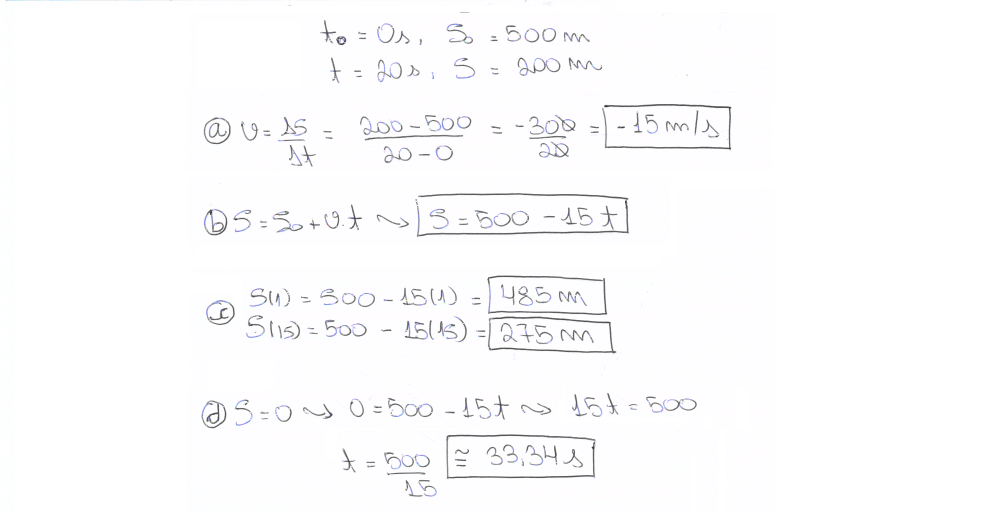 t₀ = 0s, S₀ = 500 m
t = 20s, S = 200 m
a) v = ΔS/Δt = (200 - 500)/(20 - 0) = -300/20 = -15 m/s
b) S = S₀ + v.t ⤳ S = 500 - 15t
c) S(1) = 500 - 15(1) = 485 m
S(15) = 500 - 15(15) = 275 m
d) S = 0 ⤳ 0 = 500 - 15t ⤳ 15t = 500
t = 500/15 ≅ 33,34 s